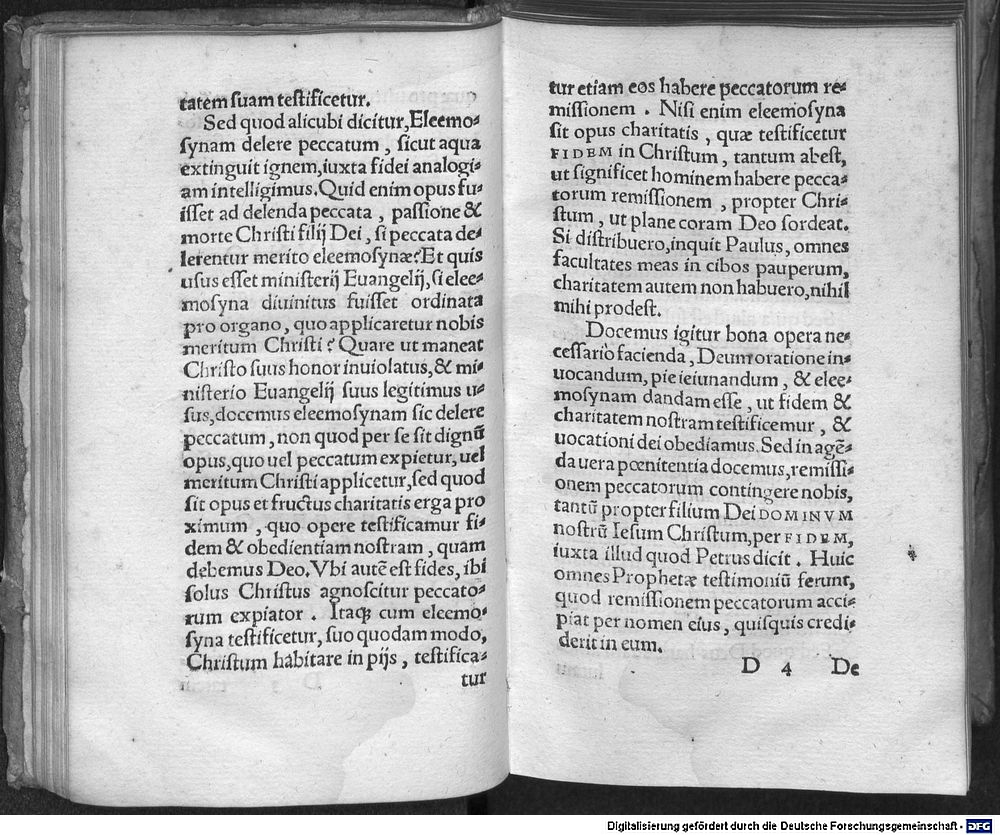 tatem suam testificetur.
Sed quod alicubi dicitur, Eleemo-
synam delere peccatum, sicut aqua
extinguit ignem, iuxta fidei analogi-
am intelligimus. Quid enim opus fu-
isset ad delenda peccata, passione &
morte Christi filij Dei, si peccata de-
lerentur merito eleemosynæ? Et quis
usus esset ministerij Euangelij, si elee-
mosyna diuinitus fuisset ordinata
pro organo, quo applicaretur nobis
meritum Christi? Quare ut maneat
Christo suus honor inuiolatus, & mi-
nisterio Euangelij suus legitimus u-
sus, docemus eleemosynam sic delere
peccatum, non quod per se sit dignũ
opus, quo uel peccatum expietur, uel
meritum Christi applicetur, sed quod
sit opus et fructus charitatis erga pro
ximum, quo opere testificamur fi-
dem & obedientiam nostram, quam
debemus Deo. Vbi autẽ est fides, ibi
solus Christus agnoscitur peccato-
rum expiator. Itaq; cum eleemo-
syna testificetur, suo quodam modo,
Christum habitare in pijs, testifica-
tur
tur etiam eos habere peccatorum re-
missionem. Nisi enim eleemosyna
sit opus charitatis, quæ testificetur
FIDEM in Christum, tantum abest,
ut significet hominem habere pecca-
torum remissionem, propter Chri-
stum, ut plane coram Deo sordeat.
Si distribuero, inquit Paulus, omnes
facultates meas in cibos pauperum,
charitatem autem non habuero, nihil
mihi prodest.
Docemus igitur bona opera ne-
cessario facienda, Deum oratione in-
uocandum, pie ieiunandum, & elee-
mosynam dandam esse, ut fidem &
charitatem nostram testificemur, &
uocationi dei obediamus. Sed in agẽ-
da uera pœnitentia docemus, remissi-
onem peccatorum contingere nobis,
tantũ propter filium Dei DOMINVM
nostrũ Iesum Christum, per FIDEM,
iuxta illud quod Petrus dicit. Huic
omnes Prophetæ testimoniũ ferunt,
quod remissionem peccatorum acci-
piat per nomen eius, quisquis credi-
derit in eum.
D 4 De
Digitalisierung gefördert durch die Deutsche Forschungsgemeinschaft - DFG